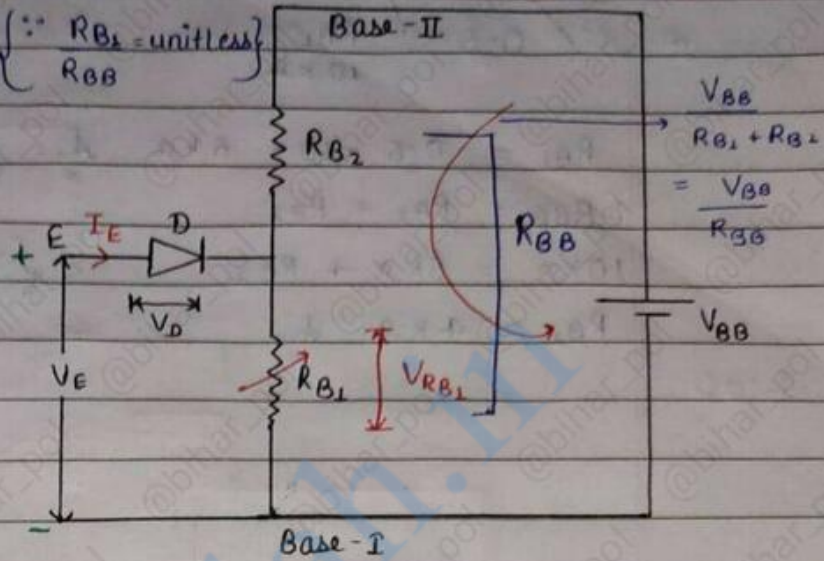 {∵ R_B1 / R_BB = unitless}
Base-II
R_B2
V_BB / R_B1 + R_B2
= V_BB / R_BB
R_BB
+ E I_E D
V_D
V_BB
V_E
R_B1
V_RB1
-
Base-I
@bihar_pol